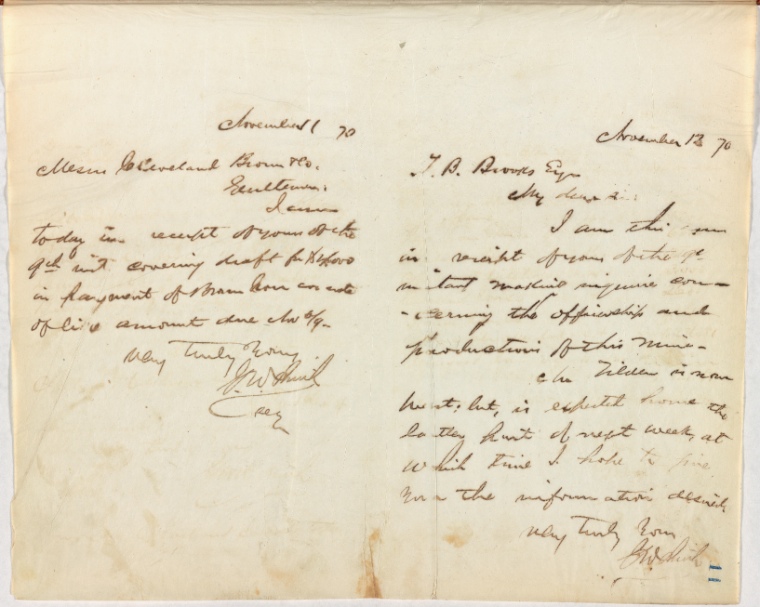 November 11 70
Messrs Cleveland Brown & Co.
Gentlemen:
I am
today in receipt of yours of the
9th inst covering draft for
in payment of Iron note
of like amount due Nov 6/9-
Very Truly Yours
J.W. Smith
Secy
November 13 70
T. B. Brooks Esq
My dear Sir:
I am this
in receipt of yours of the 9th
instant making inquiries con-
-cerning the officership and
production of this Mine-
Mr Tilden is now
West; but, is expected home the
latter part of next week, at
which time I hope to give
you the information desired.
Very Truly Yours
J.W. Smith